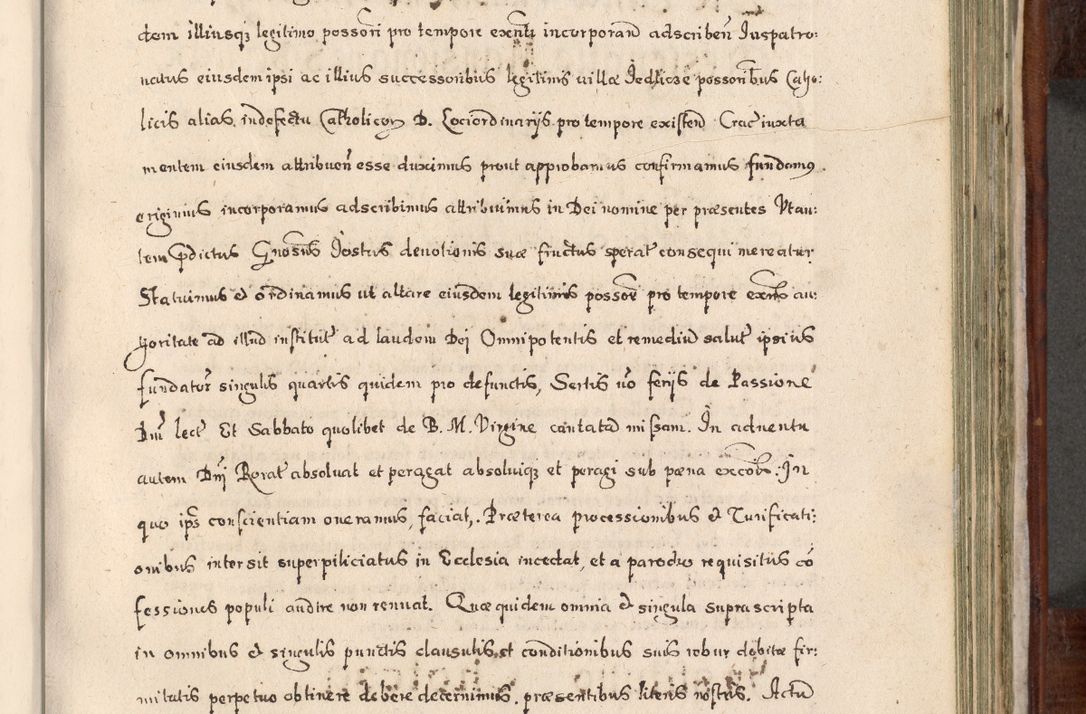 dem illiusq; legitimo possori pro tempore exñti incorporand adscribeñ Iuspatro:
natus eiusdem ipsi ac illius successoribus legitimis villæ Jedlicze possoribus Catho:
licis alias indefectu Catholicor. D. Lociordinarijs pro tempore existeñ Crac iuxta
mentem eiusdem attribueñ esse duximus prout approbamus confirmamus fundamus
erigimus incorporamus adscribimus attribuimus in Dei nomine per præsentes Vtau:
tem prædictus Gnosus Jostus devotionis suæ fructus sperat consequi mereatur
Statuimus et ordinamus ut altare eiusdem legitimis possor pro tempore exñtis au:
thoritate ad illud institut ad laudem Dei Omnipotentis et remediu salut ipsius
fundator singulis quartis quidem pro defunctis, Sextis vo ferijs de Passione
Dni lect Et Sabbato quolibet de B. M. Virgine cantatam missam. In aduentu
autem Dnj Rorat absoluat et peragat absoluiq; et peragi sub pæna excois. In
quo ips conscientiam oneramus, faciat, . Præterea processionibus et Turificati:
onibus intersit superpiliciatus in Ecclesia incedat, et a parocho requisitus co
fessiones populi audire non renuat. Quæ quidem omnia et singula suprascripta
in omnibus et singulis punctis clausulis et conditionibus suis robur debitæ fir:
mitatis perpetuo obtinere debere decernimus, præsentibus literis nostris. Actu